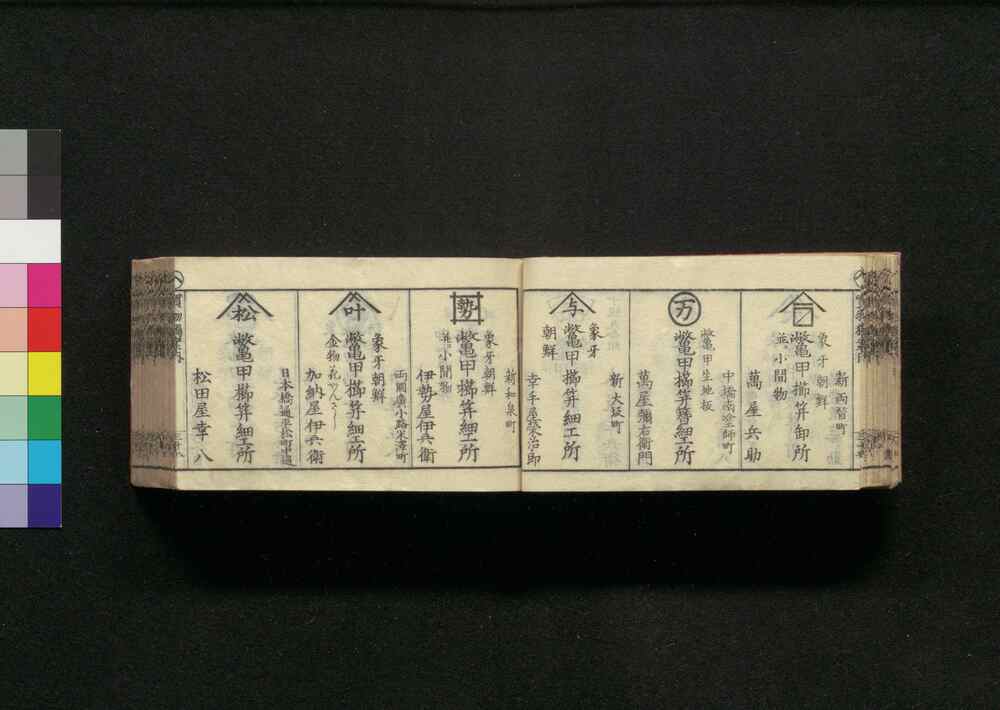 新両替町
象牙
朝鮮
鼈甲櫛笄卸所
並ニ小間物
萬屋兵助
中橋南塗師町
万
鼈甲生地板
鼈甲櫛笄簪細工所
萬屋彌右衛門
新大坂町
与
象牙
朝鮮
鼈甲櫛笄細工所
幸手屋榮治郎
新和泉町
勢
象牙朝鮮
鼈甲櫛笄細工所
並ニ小間物
伊勢屋伊兵衛
両國廣小路米澤町
叶
象牙朝鮮
鼈甲櫛笄細工所
金物花かんざし
加納屋伊兵衛
日本橋通平松町中通
松
鼈甲櫛笄細工所
松田屋幸八